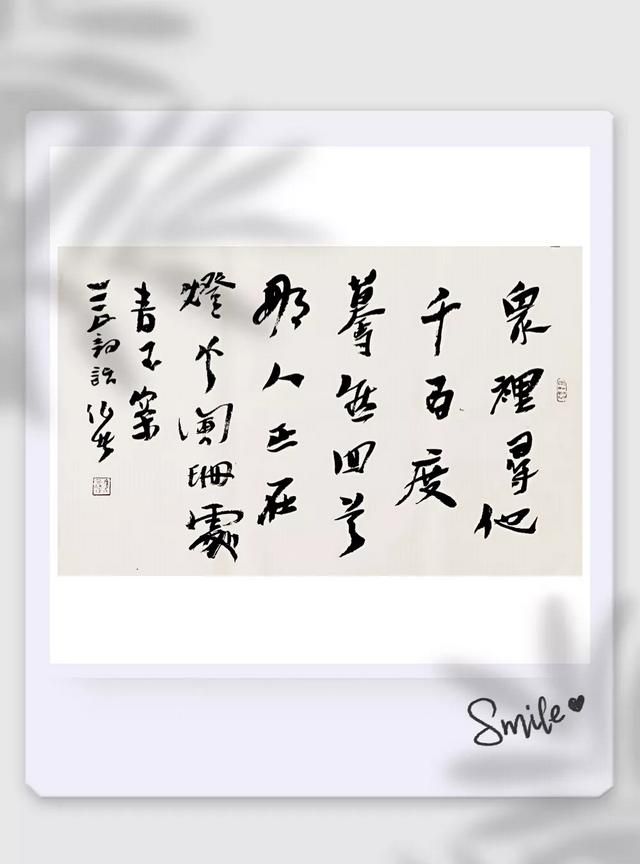 眾裡尋他
千百度
驀然回首
那人正在
燈火闌珊處
青玉案
Smile